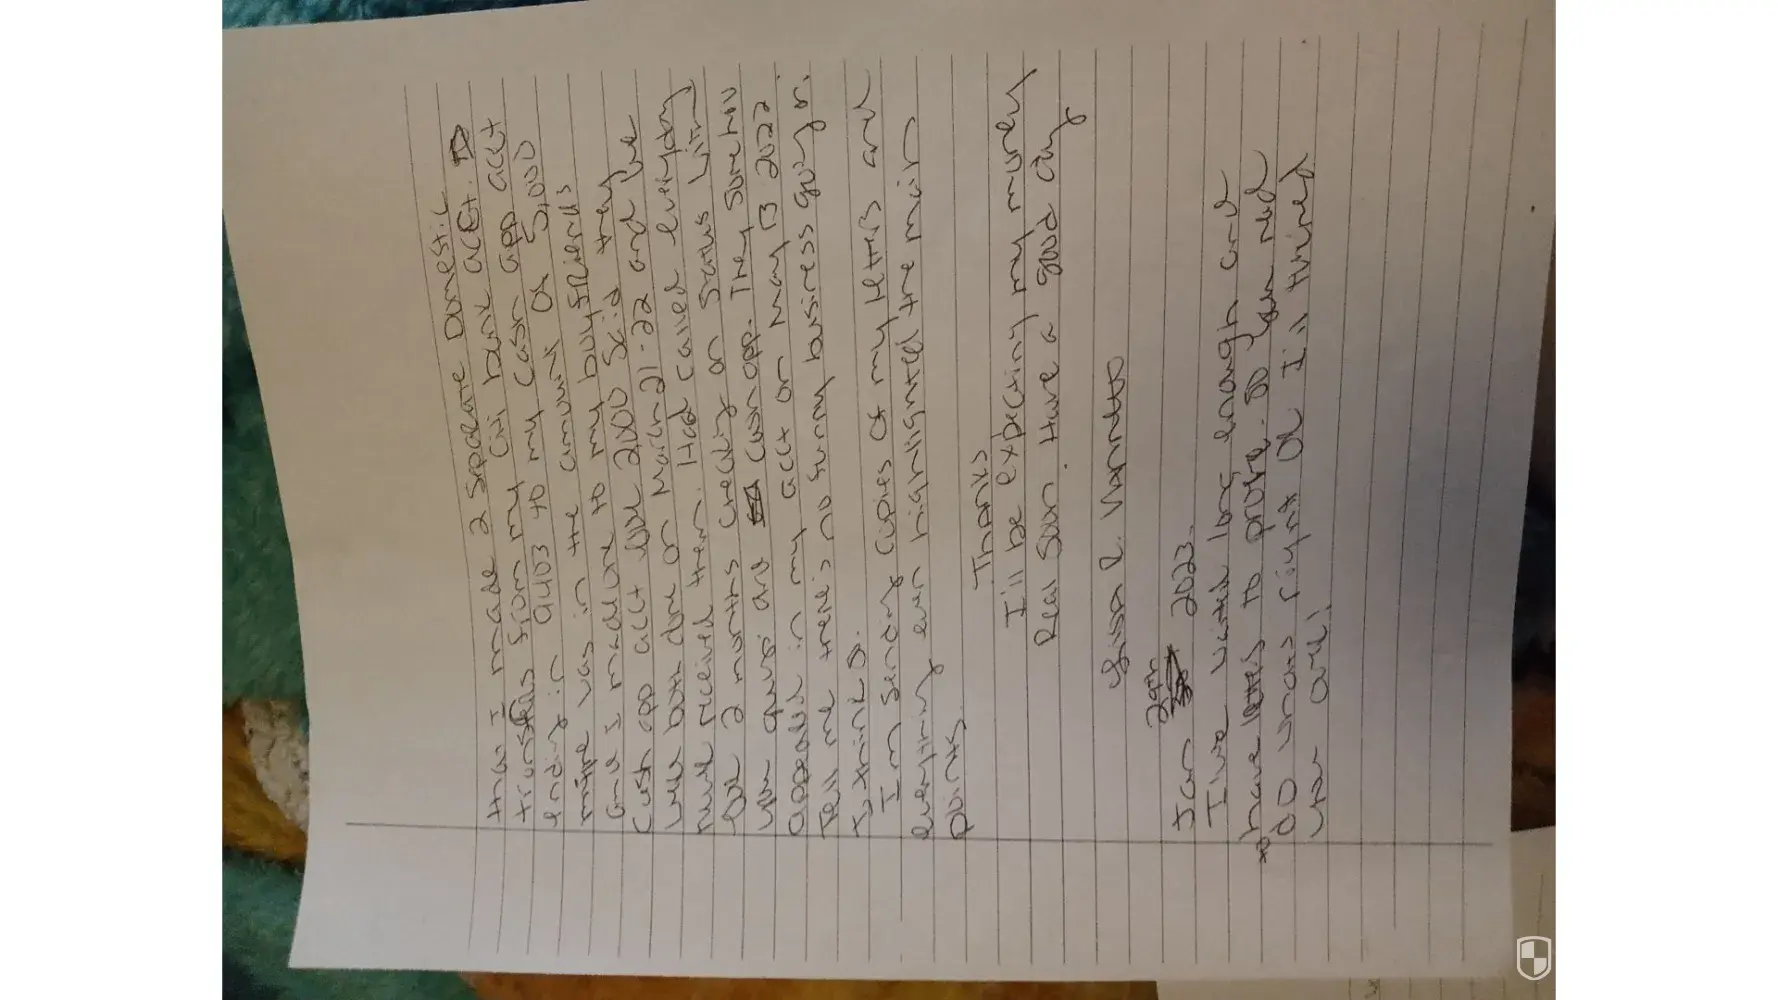 that I made 2 Seperate Domestic
transfers from my Citi bank acct.
ending in 9403 to my Cash app acct
mine was in the amount of 5,000
and I made one to my boyfriends
Cash app acct for 2,000 Said they
were both done on March 21-22 and I've
never received them. Had called everyday
for 2 months checking on Status with
you guys and Cash app. They Somehow
appeared in my acct on May 13 2022
Tell me there's no funny business going on.
I think so.
I'm Sending Copies of my letters and
everything even highlighted the main
points.
Thanks
I'll be expecting my money
Real Soon. Have a good day
Lisa R.
Jan 29th 2023.
I have waited long enough and
have letters to prove. So you need
to do whats right or I'll turned
you over!